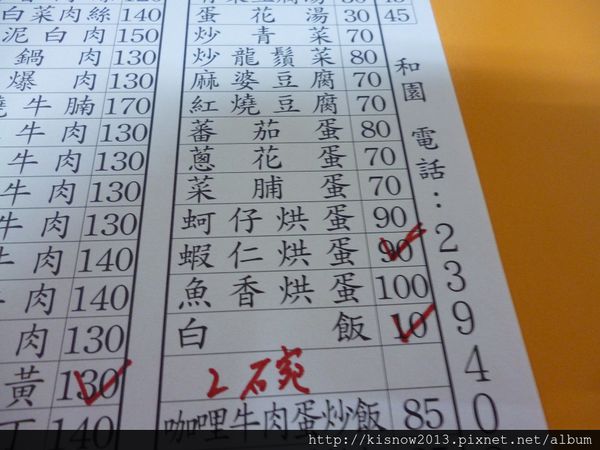 白菜肉絲 140
泥白肉 150
鍋肉 130
爆肉 130
燒牛腩 170
牛肉 130
牛肉 130
牛肉 130
牛肉 130
牛肉 140
牛肉 140
肉 130
黃 130
丁 140
蛋花湯 30 45
炒青菜 70
炒龍鬚菜 80
麻婆豆腐 70
紅燒豆腐 70
蕃茄蛋 80
蔥花蛋 70
菜脯蛋 70
蚵仔烘蛋 90
蝦仁烘蛋 90
魚香烘蛋 100
白飯 10
2碗
咖哩牛肉蛋炒飯 85
和園 電話：23940
http://kisnow2013.pixnet.net/album